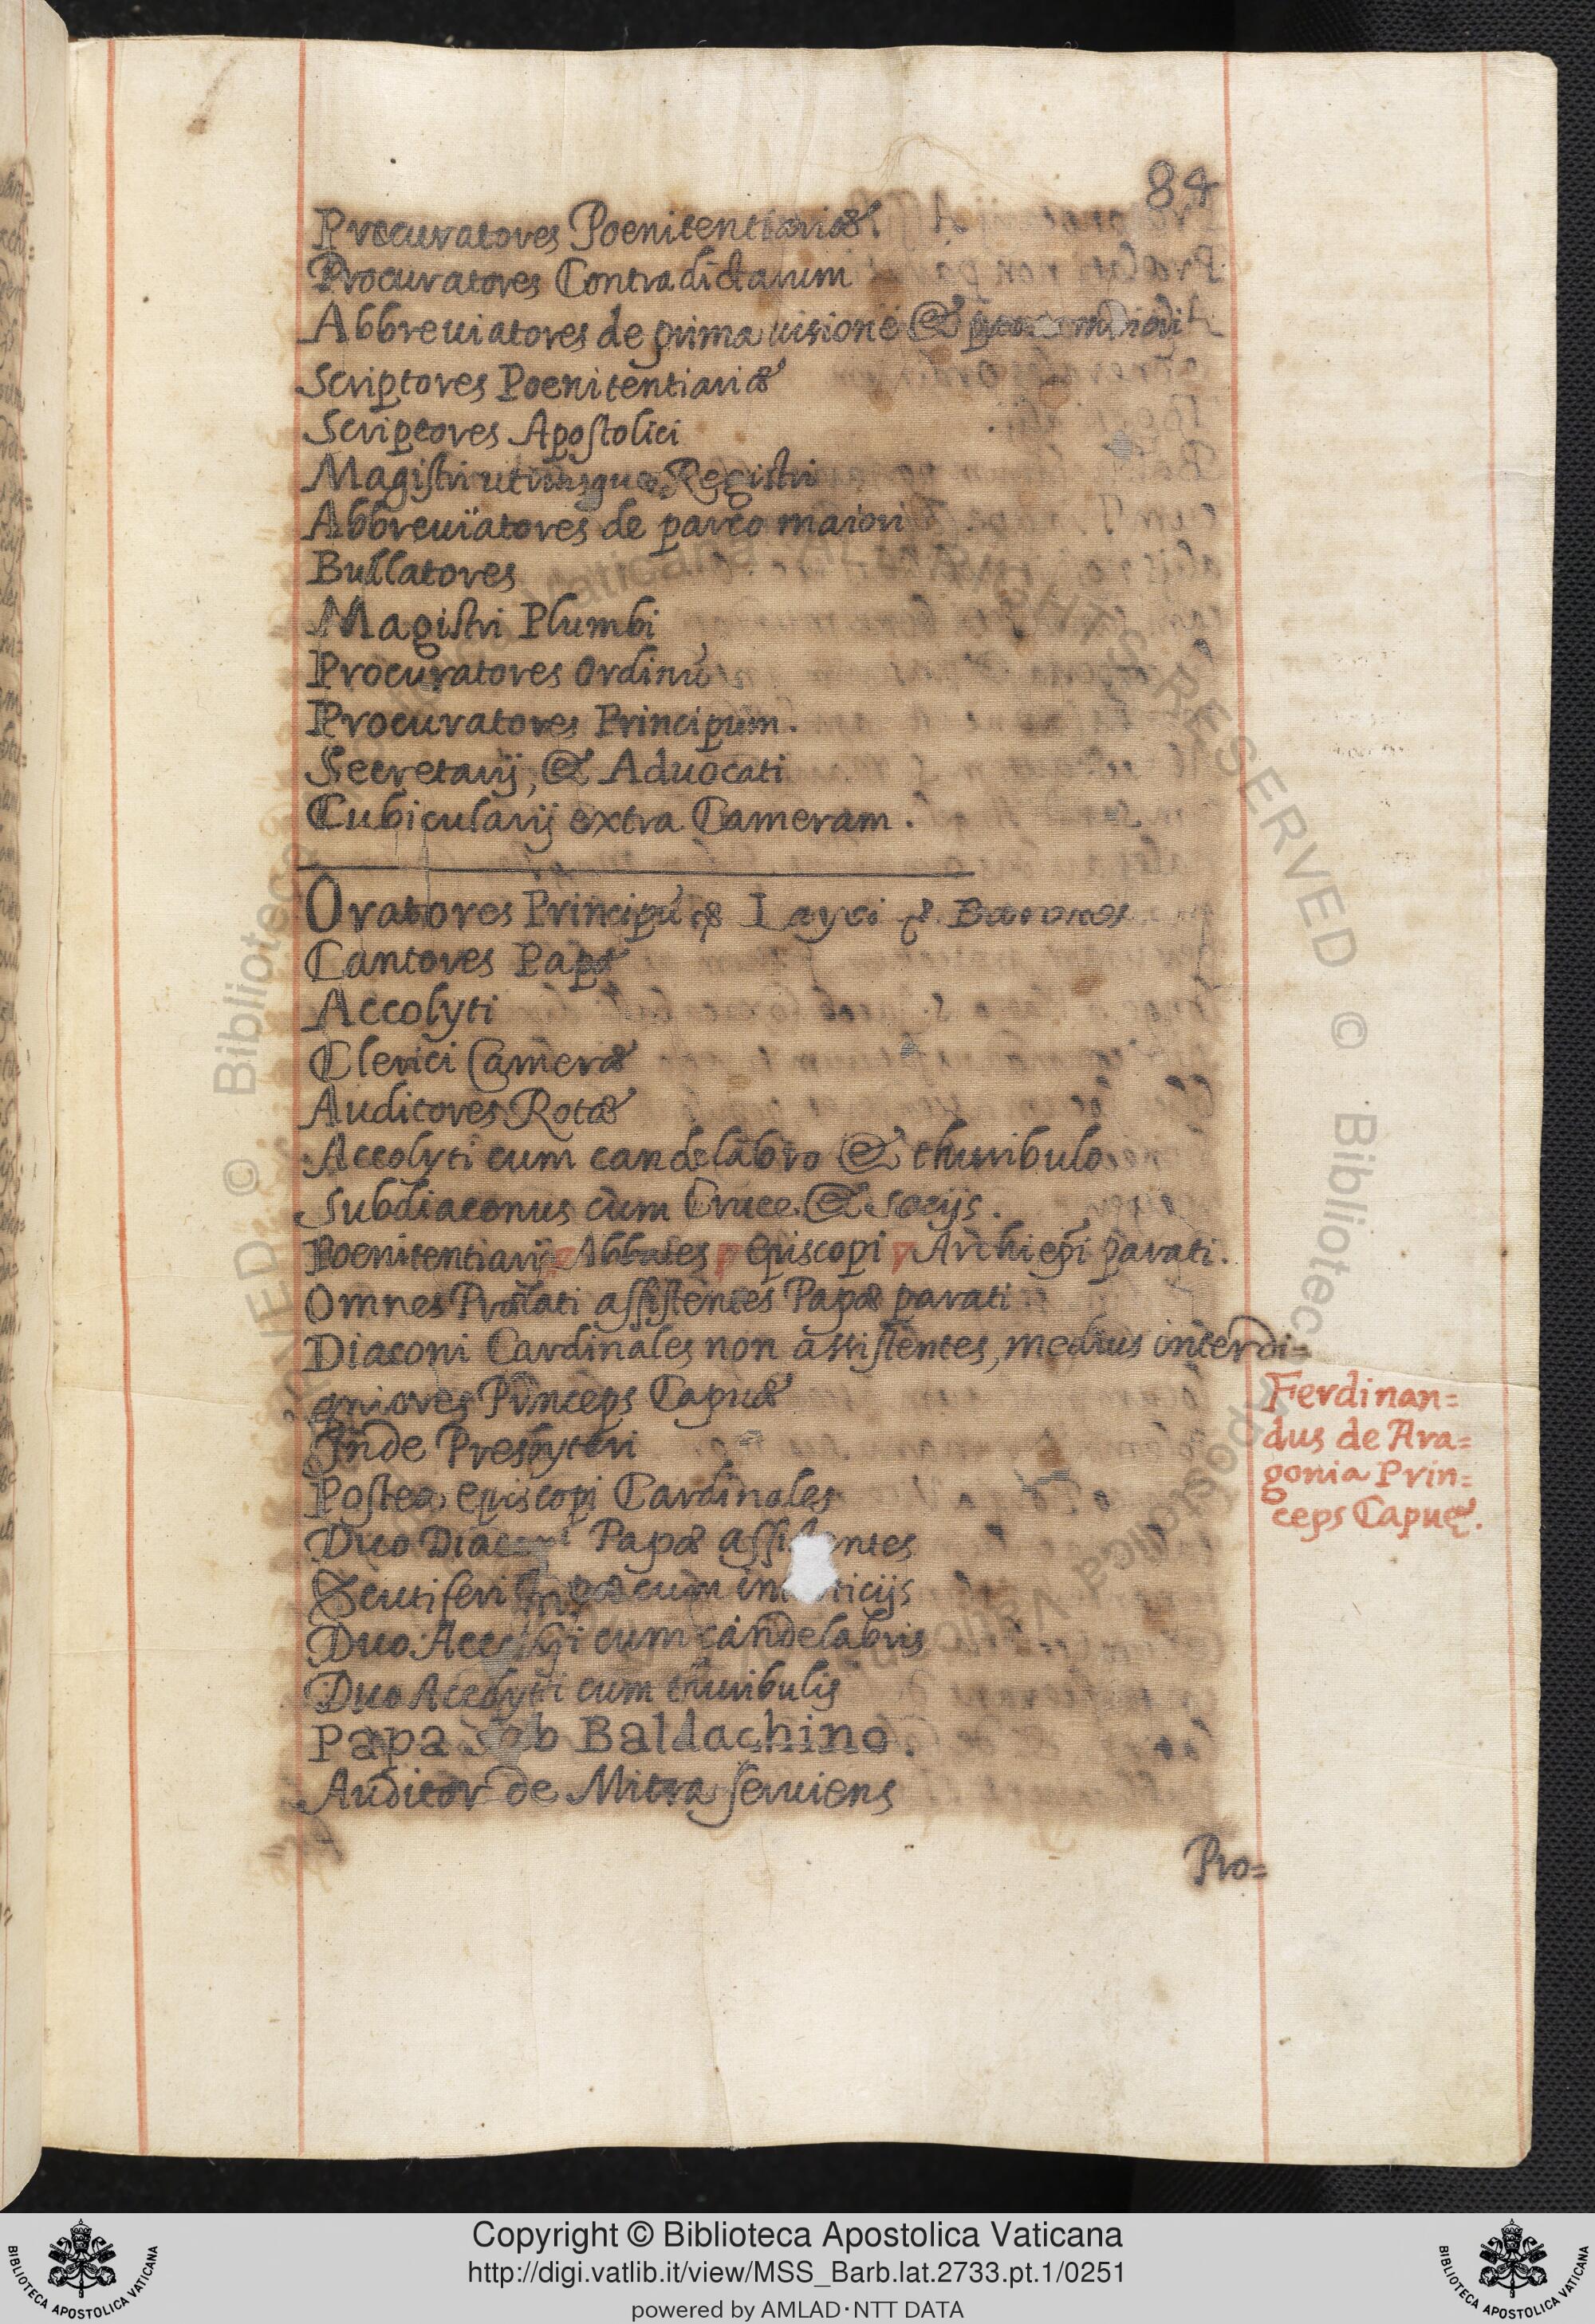 84
Procuratores Poenitentiariæ.
Procuratores Contradictarum
Abbreuiatores de prima uisione &
Scriptores Poenitentiariæ
Scriptores Apostolici
Magistri utriusque Registri
Abbreuiatores de parco maiori
Bullatores
Magistri Plumbi
Procuratores Ordinũ
Procuratores Principum.
Secretarij, & Aduocati
Cubicularij extra Cameram.
Oratores Principũ & Layci & Barones
Cantores Papæ
Accolyti
Clerici Cameræ
Auditores Rotæ
Accolyti cum candelabro & thuribulo
Subdiaconus cum Cruce & socijs.
Poenitentiarij Abbates Episcopi Archiepĩ parati.
Omnes Prælati assistentes Papæ parati
Diaconi Cardinales non assistentes, medius inter di=
gniores Princeps Capuæ
Inde Presbyteri
Postea episcopi Cardinales
Duo Papæ
Scutiferi cum
Duo cum candelabris
Duo Accolyti cum thuribulis
Papa sub Baldachino.
Auditor de Mitra seruiens
Pro=
Ferdinan=
dus de Ara=
gonia Prin=
ceps Capuę.
Copyright © Biblioteca Apostolica Vaticana
http://digi.vatlib.it/view/MSS_Barb.lat.2733.pt.1/0251
powered by AMLAD·NTT DATA
BIBLIOTECA APOSTOLICA VATICANA
BIBLIOTECA APOSTOLICA VATICANA